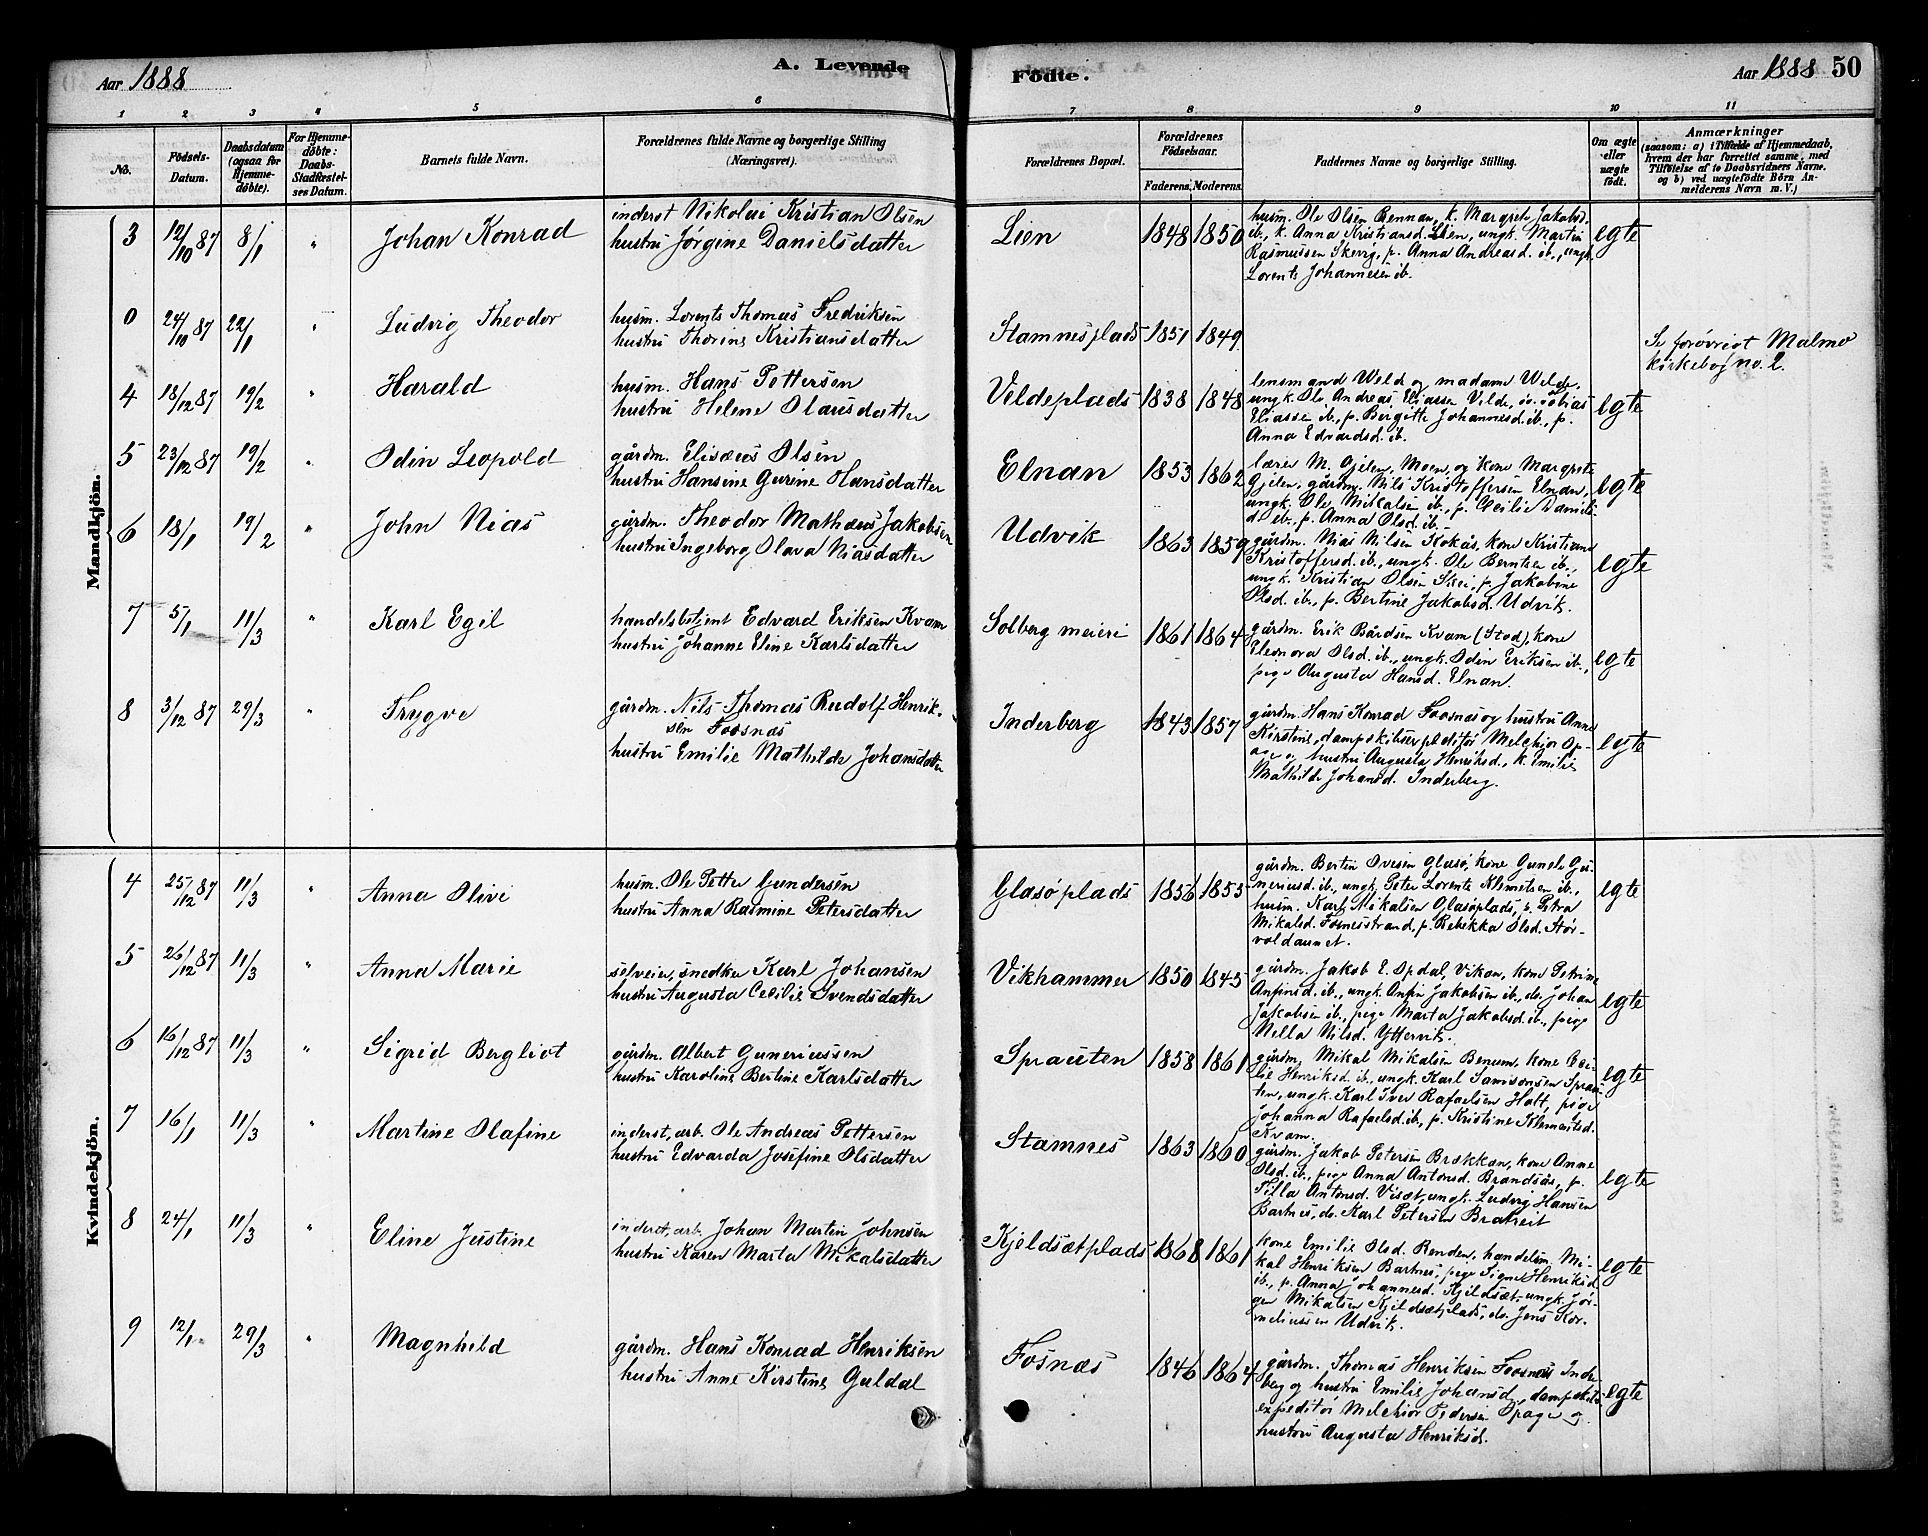 Aar 1888
A. Levende
Fødte.
Aar 1888 50
1 2 3 4 5 6 7 8 9 10 11
No.
Fødsels-Datum.
Daabsdatum (ogsaa for Hjemme-døbte).
For Hjemme-døbte: Daabs-Stadfæstel-ses Datum.
Barnets fulde Navn.
Forældrenes fulde Navne og borgerlige Stilling (Næringsvei).
Forældrenes Bopæl.
Forældrenes Fødselsaar.
Faderens. Moderens.
Faddernes Navne og borgerlige Stilling.
Om ægte eller uægte født.
Anmærkninger
(saasom: a) i Tilfælde af Hjemmedaab, hvem der har forrettet samme, med Tilføielse af to Daabsvidners Navne, og b) ved uægtefødte Børn Anmelderens Navn m. V.)
Mandkjön.
3 12/10 87 8/1 " Johan Konrad
inderst Nikolai Kristian Olsen
hustru Jørgine Danielsdatter
Lien 1848 1850
husm. Ole Olsen Rennan, k. Margrete Jakobsd.
ib., k. Anna Kristiansd. Lien, ungk. Martin
Rasmussen Skevig, p. Anna Andreasd. ib., ungk.
Lorents Johannesen ib.
egte
0 24/10 87 22/1 " Ludvig Theodor
husm. Lorents Thomas Fredriksen
hustru Thorine Kristiansdatter
Stamnesplads 1851 1849.
Se forøvrigt Malmo
kirkebog no. 2.
4 18/12 87 19/2 " Harald
husm. Hans Pettersen
hustru Helene Olausdatter
Veldeplads 1838 1848
lensmand Welde og madame Welde,
ungk. Ole Andreas Eliassen Velde, do. Tobias
Eliassen ib., p. Bergitte Johannesd. ib., p.
Anna Edvardsd. ib.
egte
5 23/12 87 19/2 " Odin Leopold
gårdm. Elisæus Olsen
hustru Hansine Gurine Hansdatter
Elnan 1853 1862
lærer M. Gjelen, Moen, og kone Margrete
Gjelen, gårdm. Nils Kristoffersen Elnan,
ungk. Ole Mikalsen ib., p. Cecilie Daniels-
d. ib., p. Anna Olsd. ib.
egte
6 18/1 19/2 " John Nias
gårdm. Theodor Mathæus Jakobsen
hustru Ingeborg Olava Niasdatter
Udvik 1863 1859
gårdm. Nias Nilsen Kokås, kone Kristiane
Kristoffersd. ib., ungk. Ole Berntsen ib.,
ungk. Kristian Olsen Skei, p. Jakobine
Olsd. ib., p. Bertine Jakobsd. Udvik.
egte
7 5/1 11/3 " Karl Egil
handelsbetjent Edvard Eriksen Kvam
hustru Johanne Eline Karlsdatter
Solberg meieri 1861 1864
gårdm. Erik Bårdsen Kvam (Stod), kone
Eleonora Olsd. ib., ungk. Odin Eriksen ib.,
pige Augusta Hansd. Elnan.
egte
8 3/12 87 29/3 " Trygve
gårdm. Nils Thomas Rudolf Henrik-
sen Fosnæs
hustru Emilie Mathilde Johansdatter
Inderberg 1843 1857
gårdm. Hans Konrad Fosnæs og hustru Anne
Kirstine, dampskibsexpeditør Melchior Op-
age og hustru Augusta Henriksd., k. Emilie
Mathilde Johansd. Inderberg.
egte
Kvindekjön.
4 25/12 87 11/3 " Anna Olive
husm. Ole Petter Gundersen
hustru Anna Rasmine Petersdatter
Glasøplads 1856 1855
gårdm. Bertin Ovesen Glasø, kone Gunele Gu-
neriusd. ib., ungk. Peter Lorents Klemetsen ib.,
husm. Karl Mikalsen Glasøplads, p. Petra
Mikalsd. Fosnesstrand, p. Rebekka Olsd. Stor-
voldaunet.
egte
5 26/12 87 11/3 " Anna Marie
selveier, snedker Karl Johansen
hustru Augusta Cecilie Svendsdatter
Vikhammer 1850 1845
gårdm. Jakob E. Opdal, Vikan, kone Petrine
Anfinsd. ib., ungk. Anfin Jakobsen ib., do. Johan
Jakobsen ib., pige Marta Jakobsd. ib., pige
Nella Nilsd. Yttervik.
egte
6 16/12 87 11/3 " Sigrid Bergliot
gårdm. Albert Guneriussen
hustru Karoline Bertine Karlsdatter
Sprauten 1858 1861
gårdm. Mikal Mikalsen Benum, kone Ceci-
lie Henriksd. ib., ungk. Karl Samsonsen Sprau-
ten, ungk. Karl Iver Rafaelsen Hatt, pige
Johanna Rafaelsd. ib., p. Kristine Klemetsd.
Kvam.
egte
7 16/1 11/3 " Martine Olafine
inderst, arb. Ole Andreas Pettersen
hustru Edvarda Josefine Olsdatter
Stamnes 1863 1860
gårdm. Jakob Petersen Brækkan, kone Anne
Olsd. ib., pige Anna Antonsd. Brandsås, p.
Tilla Antonsd. Visæt, ungk. Ludvig Hansen
Bartnes, do. Karl Petersen Bratreit
egte
8 24/1 11/3 " Eline Justine
inderst, arb. Johan Martin Johnsen
hustru Karen Marta Mikalsdatter
Kjeldsætplads 1868 1861
kone Emilie Olsd. Renden, handelsm. Mi-
kal Henriksen Bartnes, pige Signe Henriksd.
ib., p. Anna Johannesd. Kjeldsæt, ungk. Jør-
gen Mikalsen Kjeldsætplads, do. Jens Kor-
neliussen Udvik.
egte
9 12/1 29/3 " Magnhild
gårdm. Hans Konrad Henriksen
hustru Anne Kirstine Guldal
Fosnæs 1846 1864
gårdm. Thomas Henriksen Fosnæs Inder-
berg og hustru Emilie Johansd., dampskibs-
expeditør Melchior Pedersen Opage og
hustru Augusta Henriksd.
egte